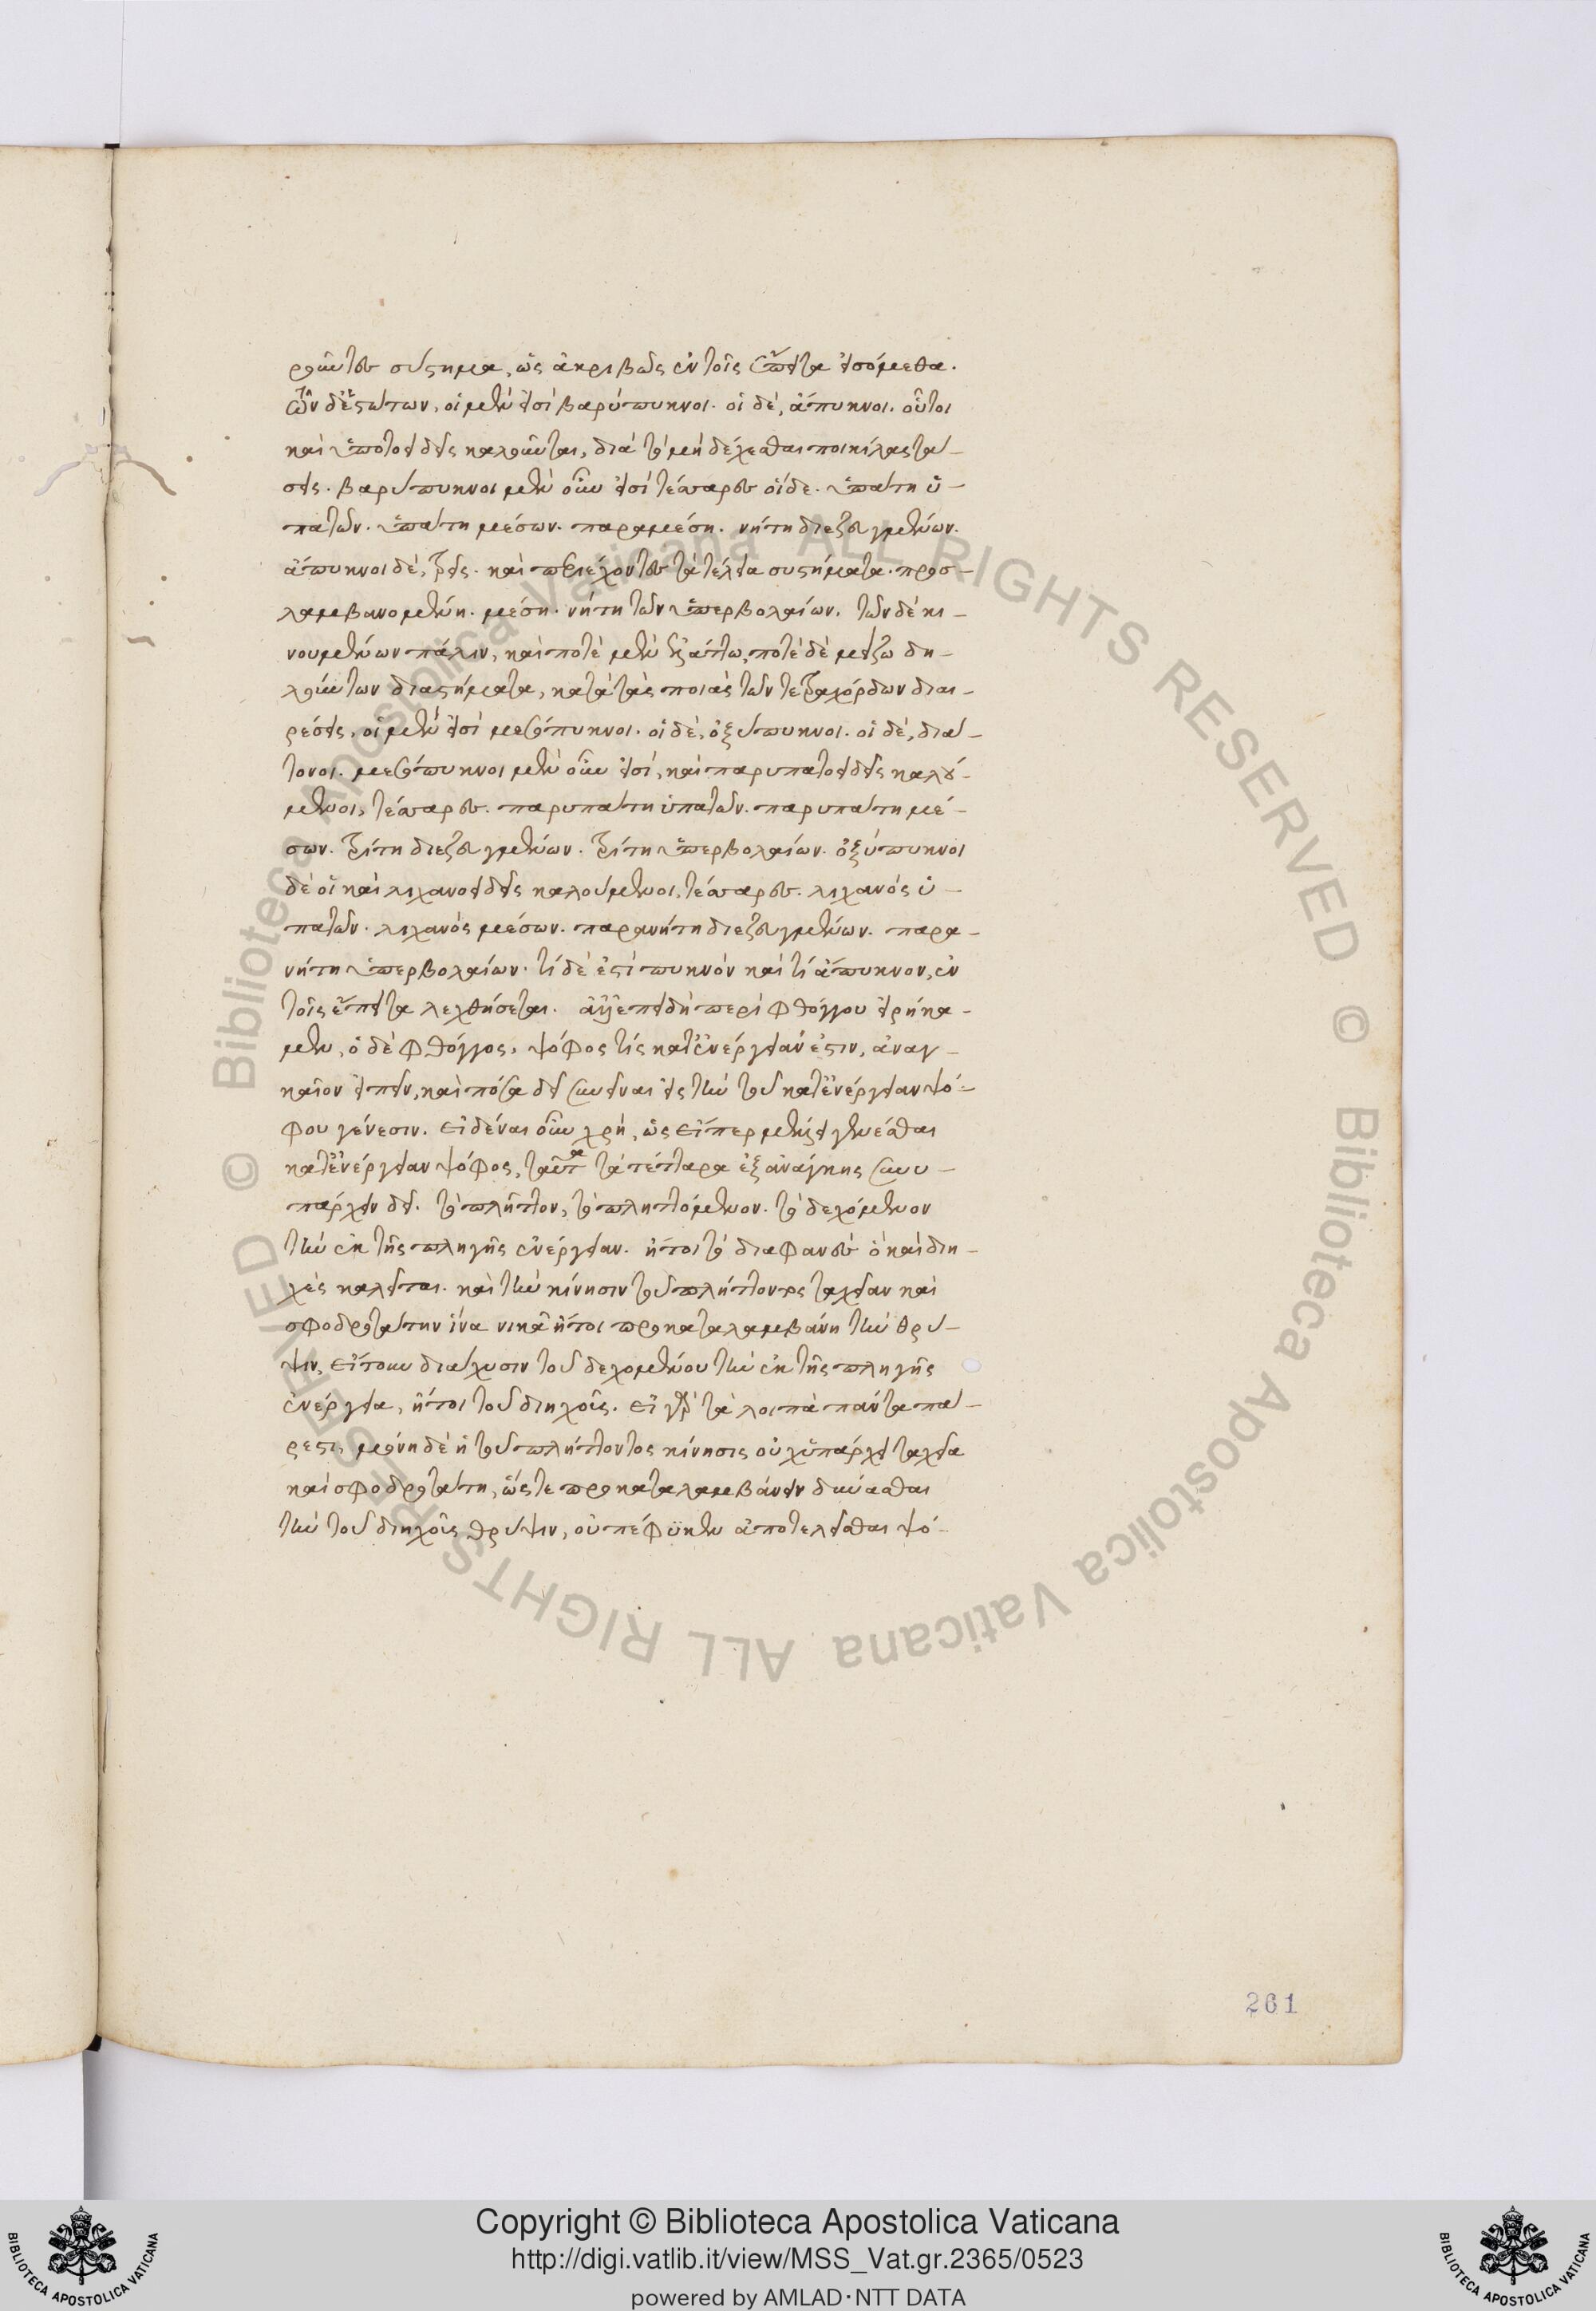 ροῦντες σύστημα, ὡς ἀκριβῶς ἐν τοῖς ἔπειτα εἰσόμεθα.
τῶν δὲ ἑστώτων, οἱ μέν εἰσι βαρύπυκνοι. οἱ δὲ, ἄπυκνοι. οὗτοι
καὶ ὑπατοειδεῖς καλοῦνται, διὰ τὸ μὴ δέχεσθαι ποικίλας τά-
σεις. βαρύπυκνοι μὲν οὖν εἰσὶ τέσσαρες οἵδε. ὑπάτη ὑ-
πατῶν. ὑπάτη μέσων. παραμέση. νήτη διεζευγμένων.
ἄπυκνοι δὲ, τρεῖς. καὶ περιέχοντες τὰ τέλεια συστήματα. προσ-
λαμβανομένη. μέση. νήτη τῶν ὑπερβολαίων. τῶν δὲ κι-
νουμένων πάλιν, καὶ ποτὲ μὲν ἐλάττω, ποτὲ δὲ μείζω δη-
λούντων διαστήματα, κατὰ τὰς ποιὰς τῶν τετραχόρδων διαι-
ρέσεις, οἱ μέν εἰσι μεσόπυκνοι. οἱ δὲ, ὀξύπυκνοι. οἱ δὲ, διά-
τονοι. μεσόπυκνοι μὲν οὖν εἰσί, καὶ παρυπατοειδεῖς καλού-
μενοι, τέσσαρες. παρυπάτη ὑπατῶν. παρυπάτη μέ-
σων. τρίτη διεζευγμένων. τρίτη ὑπερβολαίων. ὀξύπυκνοι
δὲ οἱ καὶ λιχανοειδεῖς καλούμενοι, τέσσαρες. λιχανὸς ὑ-
πατῶν. λιχανὸς μέσων. παρανήτη διεζευγμένων. παρα-
νήτη ὑπερβολαίων. τί δέ ἐστι πυκνὸν καὶ τί ἄπυκνον, ἐν
τοῖς ἔπειτα λεχθήσεται. ἀλλ' ἐπειδὴ περὶ φθόγγου εἰρήκα-
μεν, ὁ δὲ φθόγγος, ψόφος τίς κατ' ἐνέργειάν ἐστιν, ἀναγ-
καῖον εἰπεῖν, καὶ πόσα δεῖ συνεῖναι εἰς τὴν τοῦ κατ' ἐνέργειαν ψό-
φου γένεσιν. εἰδέναι οὖν χρή, ὡς εἴπερ μέλλει γενέσθαι
κατ' ἐνέργειαν ψόφος, ταῦτα τὰ τέτταρα ἐξ ἀνάγκης συνυ-
πάρχειν δεῖ. τὸ πλῆττον, τὸ πληττόμενον. τὸ δεχόμενον
τὴν ἐκ τῆς πληγῆς ἐνέργειαν. ἤτοι τὸ διαφανὲς ὃ καὶ διη-
χὲς καλεῖται. καὶ τὴν κίνησιν τοῦ πλήττοντος ταχεῖαν καὶ
σφοδροτάτην ἵνα νικᾶ ἤτοι προκαταλαμβάνη τὴν θρύ-
ψιν, εἴτουν διάχυσιν τοῦ δεχομένου τὴν ἐκ τῆς πληγῆς
ἐνέργεια, ἤτοι τοῦ διηχοῦς. εἰ γὰρ τὰ λοιπὰ πάντα πά-
ρεστι, μόνη δὲ ἡ τοῦ πλήττοντος κίνησις οὐχ ὑπάρχει ταχεῖα
καὶ σφοδροτάτη, ὥστε προκαταλαμβάνειν δύνασθαι
τὴν τοῦ διηχοῦς θρύψιν, οὐ πέφϋκεν ἀποτελεῖσθαι ψό-
261
© Biblioteca Apostolica Vaticana ALL RIGHTS RESERVED © Biblioteca Apostolica Vaticana ALL RIGHTS RESERVED
BIBLIOTECA APOSTOLICA VATICANA
Copyright © Biblioteca Apostolica Vaticana
http://digi.vatlib.it/view/MSS_Vat.gr.2365/0523
powered by AMLAD·NTT DATA
BIBLIOTECA APOSTOLICA VATICANA